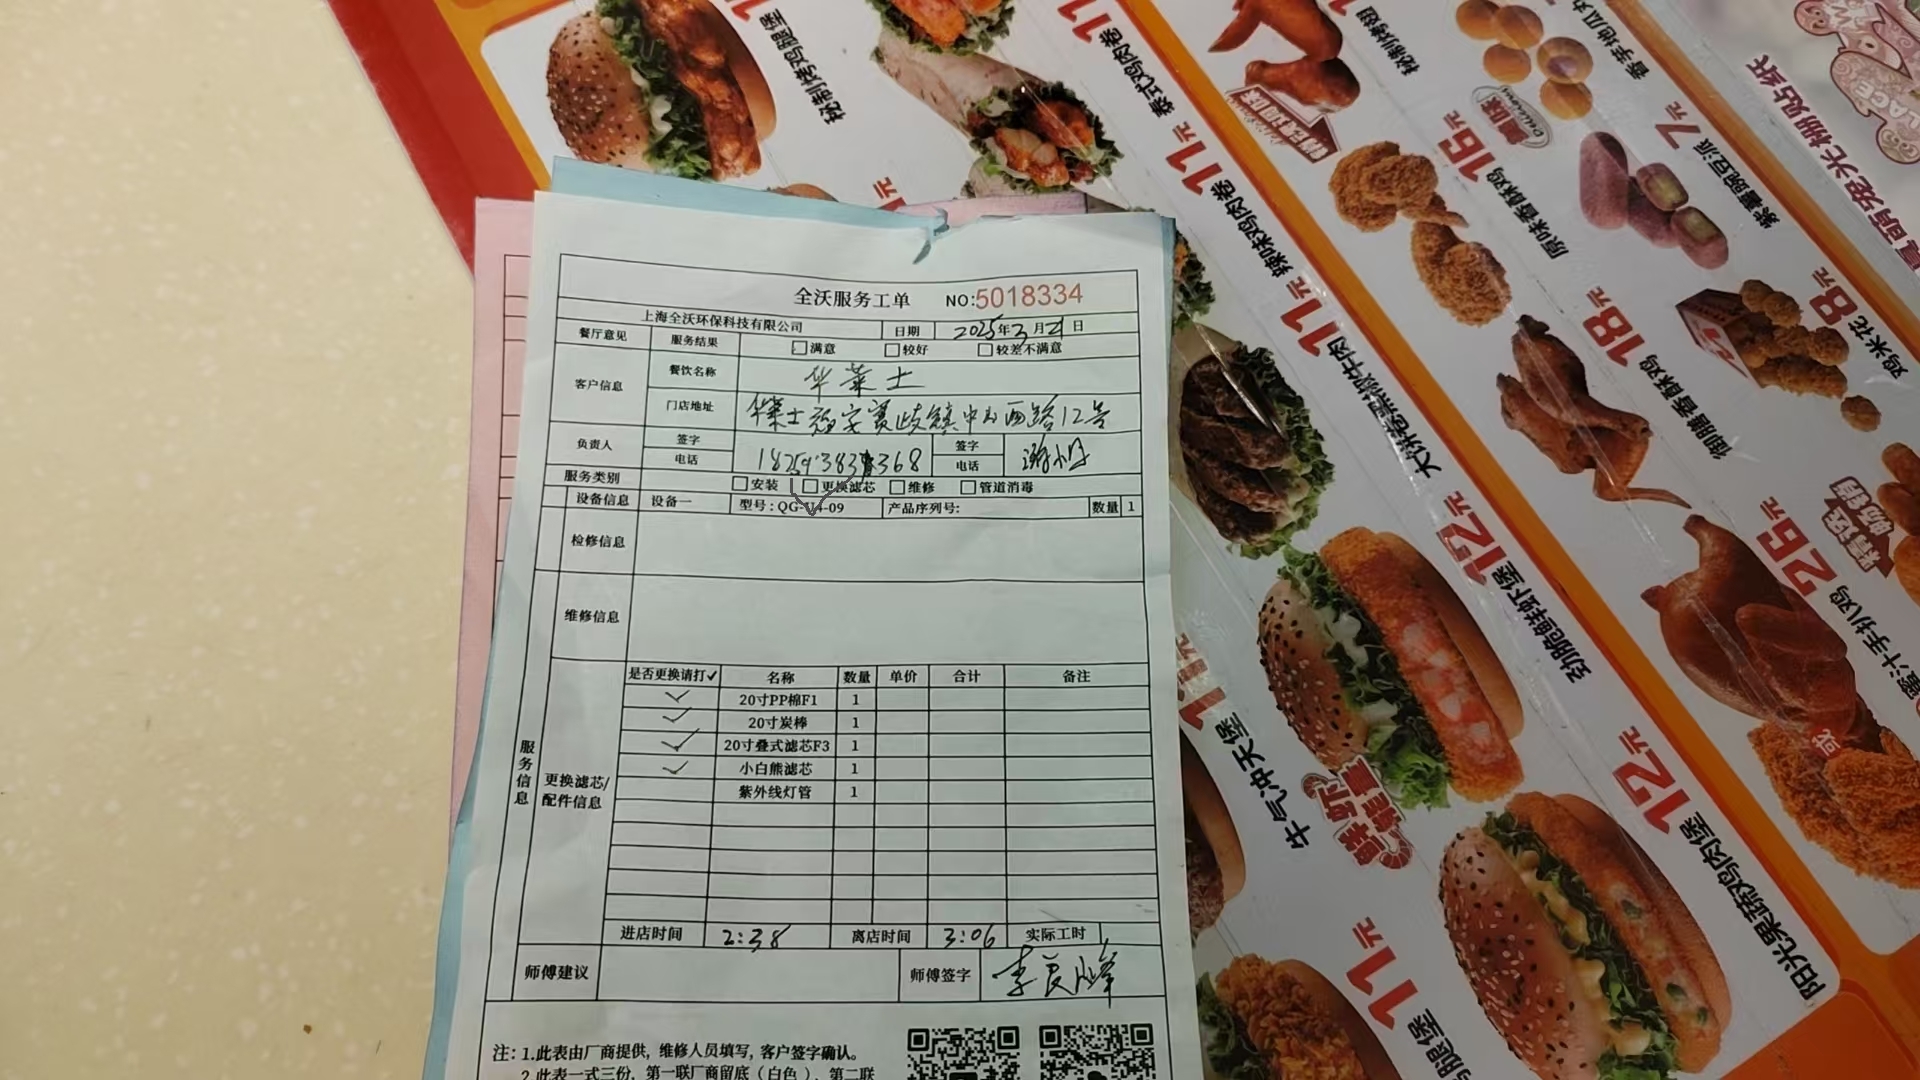 全沃服务工单 NO:5018334
上海全沃环保科技有限公司 日期 2025年3月21日
餐厅意见 服务结果 满意 较好 较差不满意
客户信息 餐饮名称 华莱士
门店地址 华莱士福安赛岐镇中山西路12号
负责人 签字 电话 签字 电话
服务类别 安装 更换滤芯 维修 管道消毒
设备信息 设备一 型号:QG-U4-09 产品序列号: 数量 1
检修信息
维修信息
服务信息
更换滤芯/配件信息
是否更换请打✓ 名称 数量 单价 合计 备注
✓ 20寸PP棉F1 1
✓ 20寸炭棒 1
✓ 20寸叠式滤芯F3 1
✓ 小白熊滤芯 1
紫外线灯管 1
进店时间 2:38 离店时间 3:06 实际工时
师傅建议 师傅签字 李良峰
注: 1.此表由厂商提供, 维修人员填写, 客户签字确认。
2.此表一式三份, 第一联厂商留底(白色)、第二联
秘制烤鸡腿堡
泰式鸡肉卷 11元
秘制烤翅
香芋地瓜丸
美味
Delicious
辣味鸡肉卷 11元
原味香酥鸡 16元
紫薯豌豆派 7元
大饼卷黑椒牛肉 11元
御膳香酥鸡 18元
鸡米花 8元
劲脆鲜虾堡 12元
蜜汁手扒鸡 26元
或
牛气冲天堡 11元
阳光果蔬鸡肉堡 12元
腿堡 11元